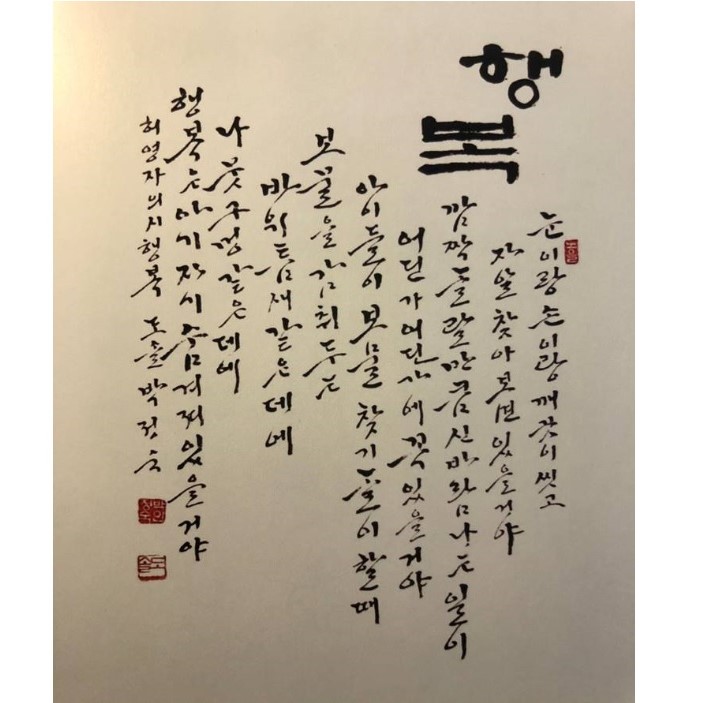 행복
눈이랑 손이랑 깨끗이 씻고
자알 찾아보면 있을거야
깜짝 놀랄 만큼 신바람나는 일이
어딘가 어딘가에 꼭 있을거야
아이들이 보물 찾기 놀이 할 때
보물을 감춰두는
바위틈새 같은 데에
나뭇구멍 같은데에
행복은 아기자기 숨겨져있을거야
허영자의 시 행복 도솔 박정숙